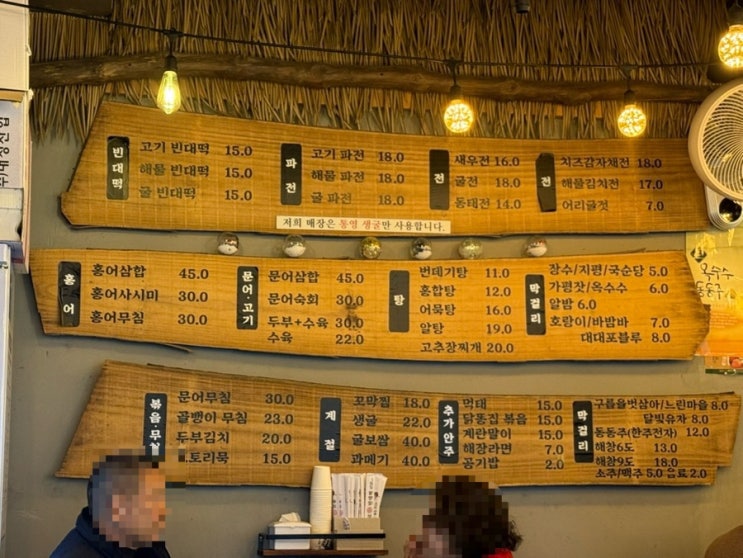 빈대떡
고기 빈대떡 15.0
해물 빈대떡 15.0
굴 빈대떡 15.0
파전
고기 파전 18.0
해물 파전 18.0
굴 파전 18.0
전
새우전 16.0
굴전 18.0
동태전 14.0
전
치즈감자채전 18.0
해물김치전 17.0
어리굴젓 7.0
저희 매장은 통영 생굴만 사용합니다.
홍어
홍어삼합 45.0
홍어사시미 30.0
홍어무침 30.0
문어·고기
문어삼합 45.0
문어숙회 30.0
두부+수육 30.0
수육 22.0
탕
번데기탕 11.0
홍합탕 12.0
어묵탕 16.0
알탕 19.0
고추장찌개 20.0
막걸리
장수/지평/국순당 5.0
가평잣/옥수수 6.0
알밤 6.0
호랑이/바밤바 7.0
대대포블루 8.0
옥수수
동동주
볶음·무침
문어무침 30.0
골뱅이 무침 23.0
두부김치 20.0
토리묵 15.0
계절
꼬막찜 18.0
생굴 22.0
굴보쌈 40.0
과메기 40.0
추가안주
먹태 15.0
닭똥집 볶음 15.0
계란말이 15.0
해장라면 7.0
공기밥 2.0
막걸리
구름을벗삼아/느린마을 8.0
달빛유자 8.0
동동주(한주전자) 12.0
해창6도 13.0
해창9도 18.0
소주/맥주 5.0 음료 2.0